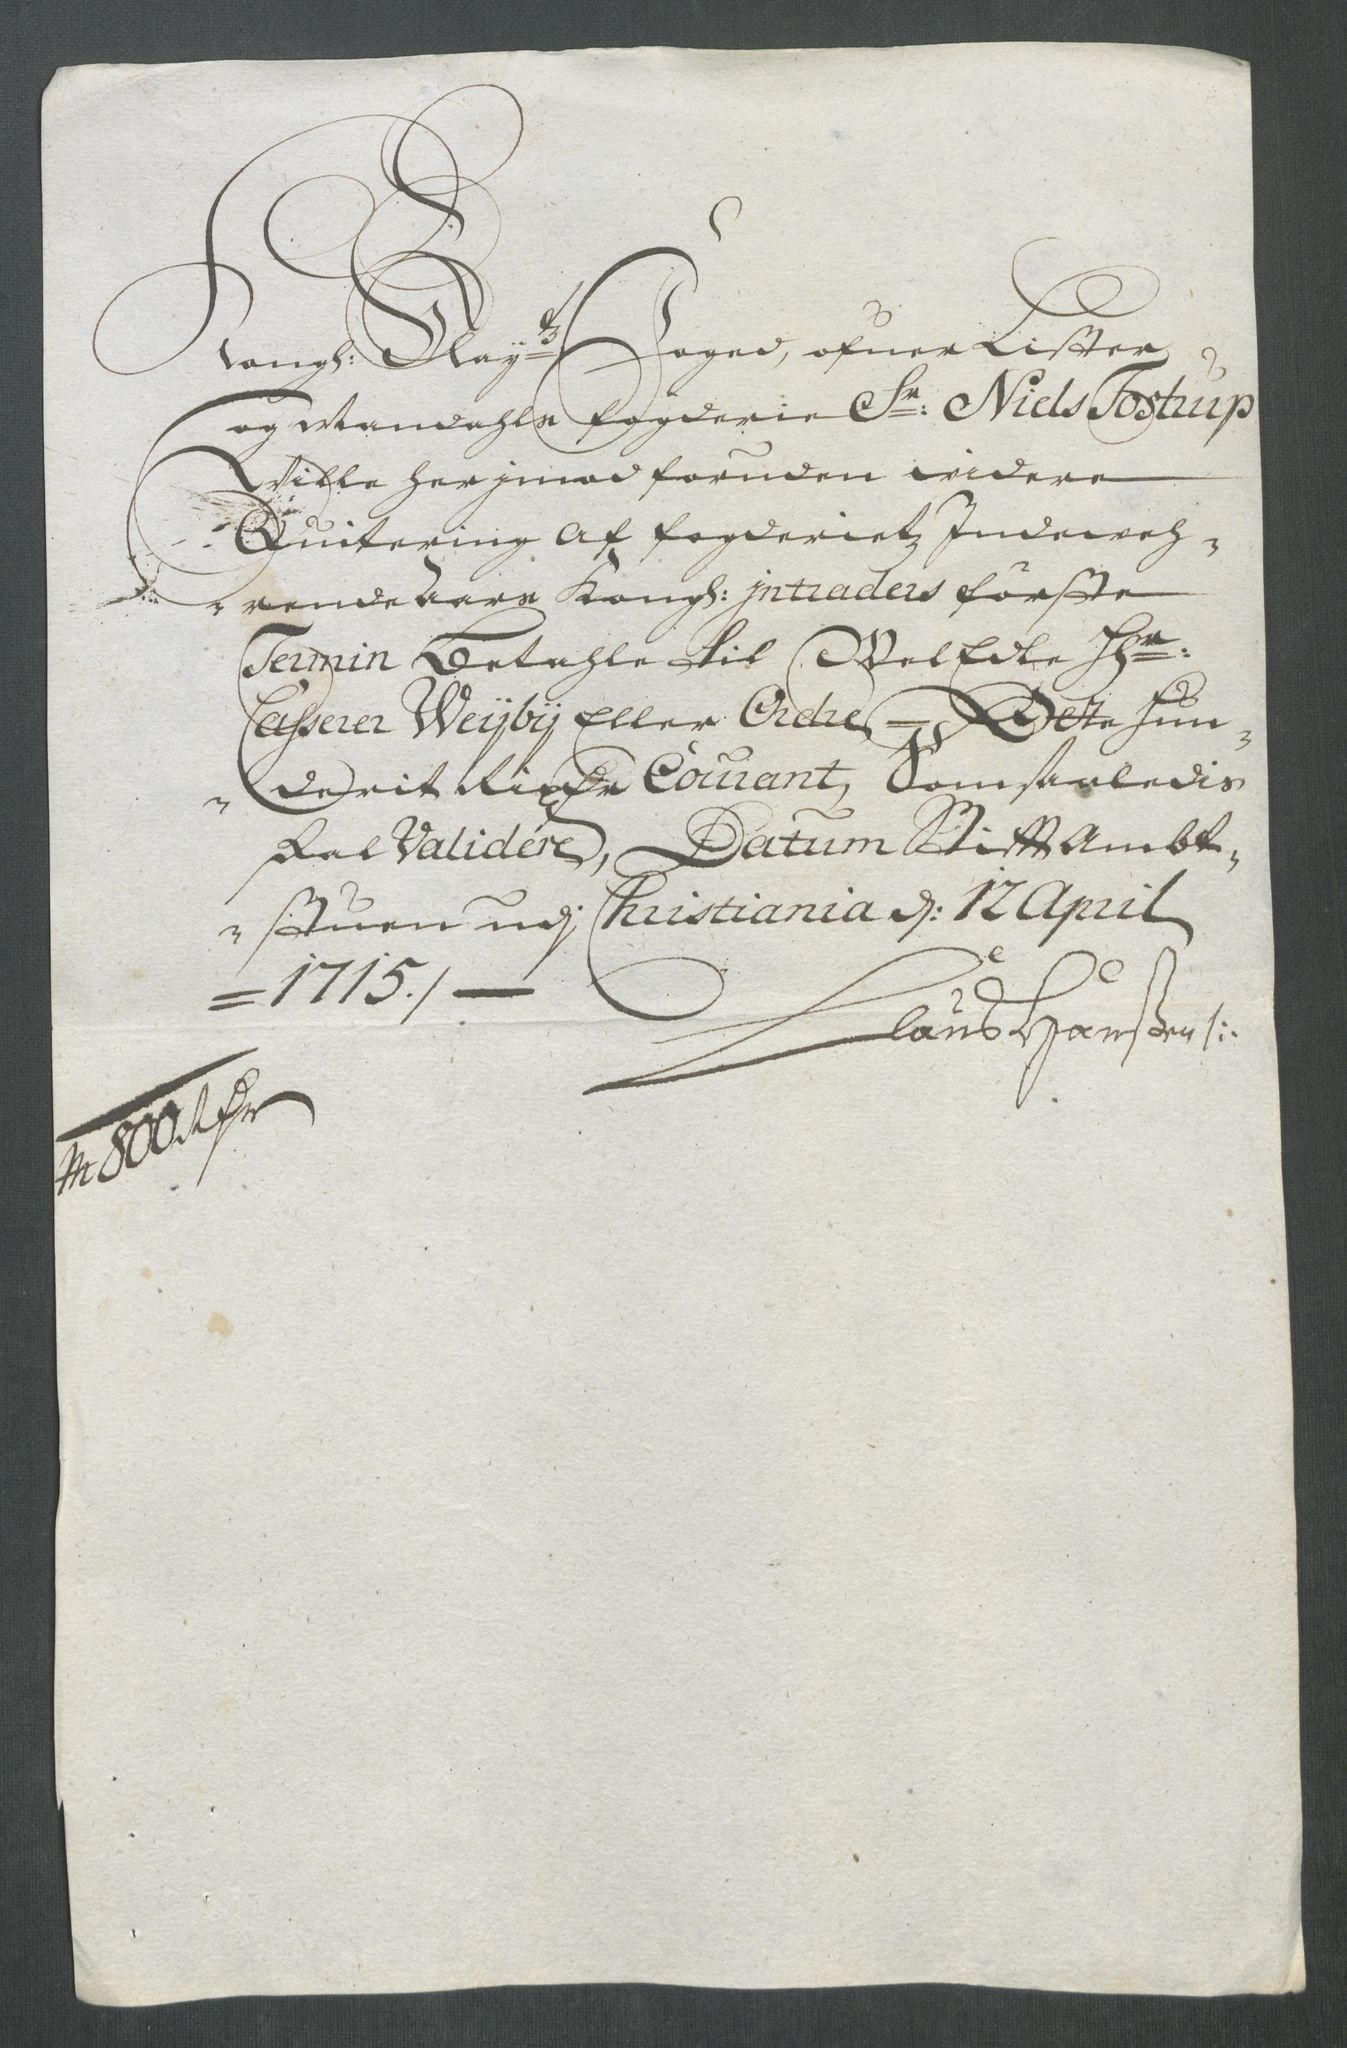 Kongl: Mayts Foged, ofuer Lister
og Mandahls fogderie Sr: Niels Tostrup
Wille her jmod foruden videre
Quitering Af fogderietz Indeweh-
-rende aars Kongl: jntraders förste
Termin Betahle til WelEdle Hr:
Casserer Weÿbÿ Eller Ordre = Otte Hun-
-derit Rixdr Courant, Som saaledis
skal Validére, Datum Stifft Ambt-
-stuen udj Christiania d: 17 April
=1715./
Claus Hansen
800 Rdr